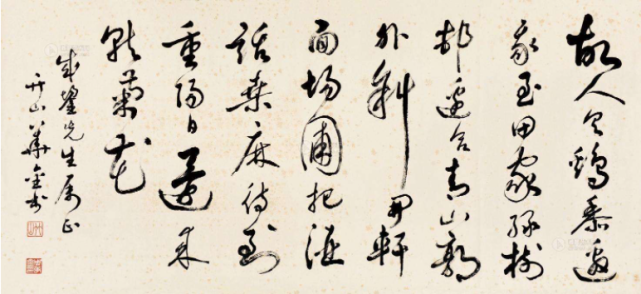 故人具鷄黍邀
我至田家緑樹
邨邊合青山郭
外斜開軒
面場圃把酒
話桑麻待到
重陽日還来
就菊花
先生属正
山華書